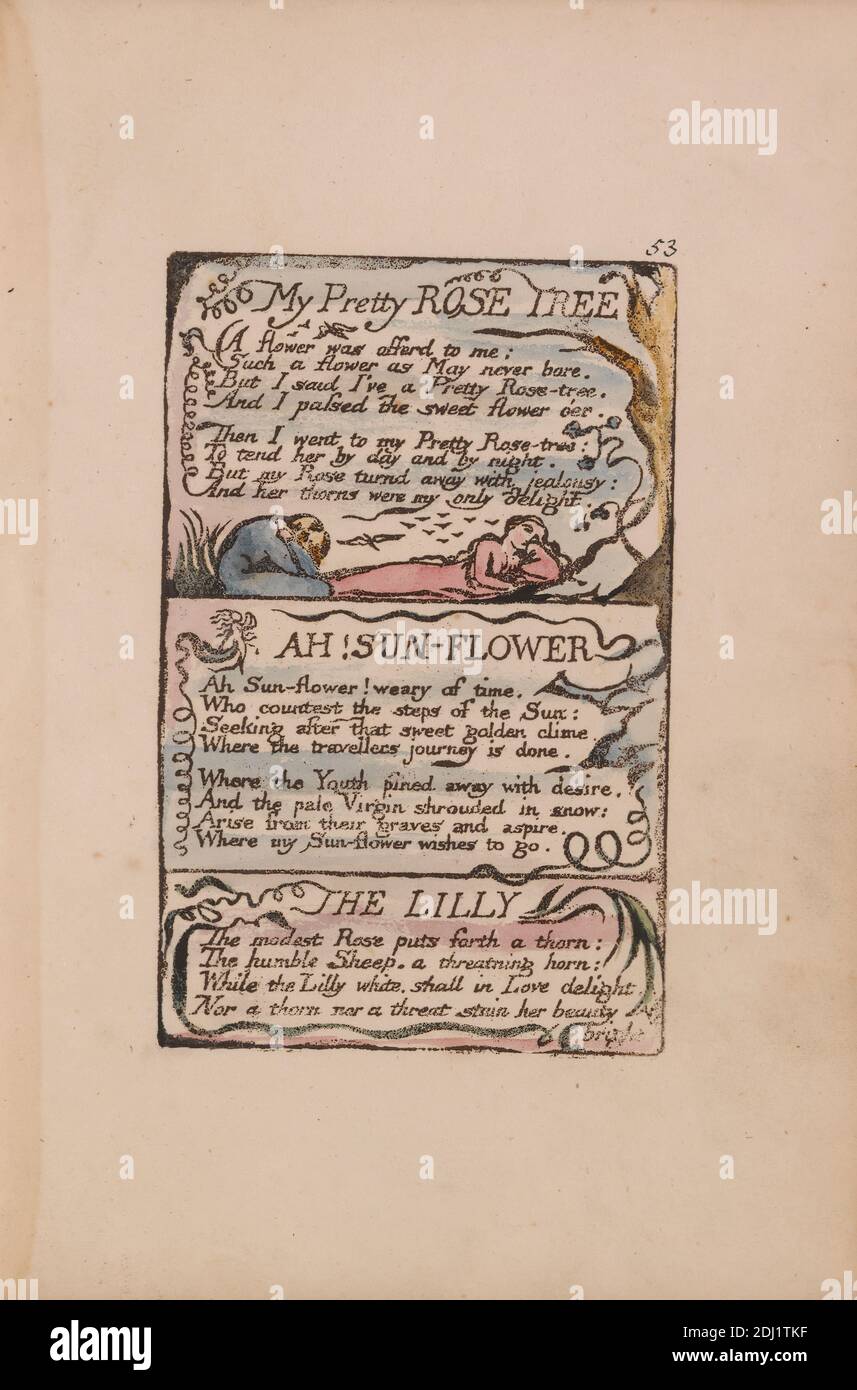 53
My Pretty ROSE TREE
A flower was offerd to me:
Such a flower as May never bore.
But I said I've a Pretty Rose-tree.
And I passed the sweet flower o'er.
Then I went to my Pretty Rose-tree:
To tend her by day and by night.
But my Rose turnd away with jealousy:
And her thorns were my only delight.
AH! SUN-FLOWER
Ah Sun-flower! weary of time.
Who countest the steps of the Sun:
Seeking after that sweet golden clime
Where the travellers journey is done.
Where the Youth pined away with desire.
And the pale Virgin shrouded in snow:
Arise from their graves and aspire.
Where my Sun-flower wishes to go.
THE LILLY
The modest Rose puts forth a thorn:
The humble Sheep. a threatning horn:
While the Lilly white, shall in Love delight
Nor a thorn nor a threat stain her beauty
bright
a
a
a
a
a
alamy
a
a
alamy
a
a
a
a
alamy
a
a
a
a
a
alamy
Image ID: 2DJ1TKF
www.alamy.com